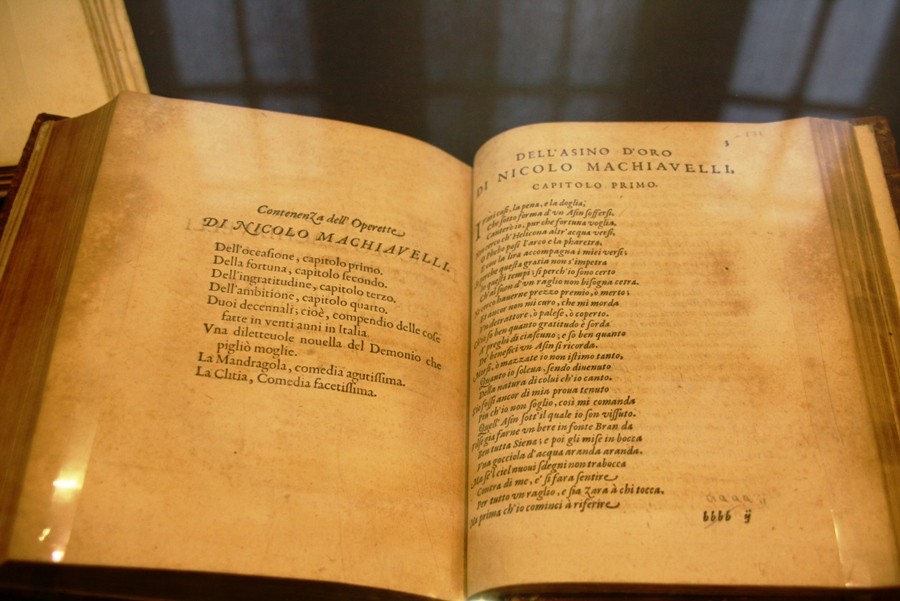 Contenenza dell'Operette
DI NICOLO MACHIAVELLI.
Dell'occasione, capitolo primo.
Della fortuna, capitolo secondo.
Dell'ingratitudine, capitolo terzo.
Dell'ambitione, capitolo quarto.
Duoi decennali; cioè, compendio delle cose
fatte in venti anni in Italia.
Vna diletteuole nouella del Demonio che
pigliò moglie.
La Mandragola, comedia agutissima.
La Clitia, Comedia facetissima.
DELL'ASINO D'ORO
DI NICOLO MACHIAVELLI,
CAPITOLO PRIMO.
casi, la pena, e la doglia;
Che sotto forma d'vn Asin soffersi.
Canterò io, pur che fortuna voglia.
cerco ch'Helicona altr'acqua versi,
O Phebo posi l'arco e la pharetra,
E con la lira accompagna i miei versi;
perche questa gratia non s'impetra
In questi tempi; si perch'io sono certo
Ch'al suon d'vn raglio non bisogna cetra.
cerco hauerne prezzo premio, ò merto;
Et ancor non mi curo, che mi morda
Vn detrattore, ò palese, ò coperto.
so ben quanto gratitudo è sorda
A preghi di ciascuno; e so ben quanto
De' benefici vn Asin si ricorda.
Morsi, ò mazzate io non istimo tanto,
Quanto io soleua, sendo diuenuto
Della natura di colui ch'io canto.
S'io fossi ancor di mia proua tenuto
Piu ch'io non soglio, così mi comanda
Quell'Asin sott'il quale io son vissuto.
Volse già farne vn bere in fonte Bran da
Ben tutta Siena; e poi gli mise in bocca
Vna gocciola d'acqua aranda aranda.
Ma se'l ciel nuoui sdegni non trabocca
Contra di me, e' si fara sentire
Per tutto vn raglio, e sia zara à chi tocca.
Ma prima ch'io cominci à riferire
aaaa ii
bbbb ij